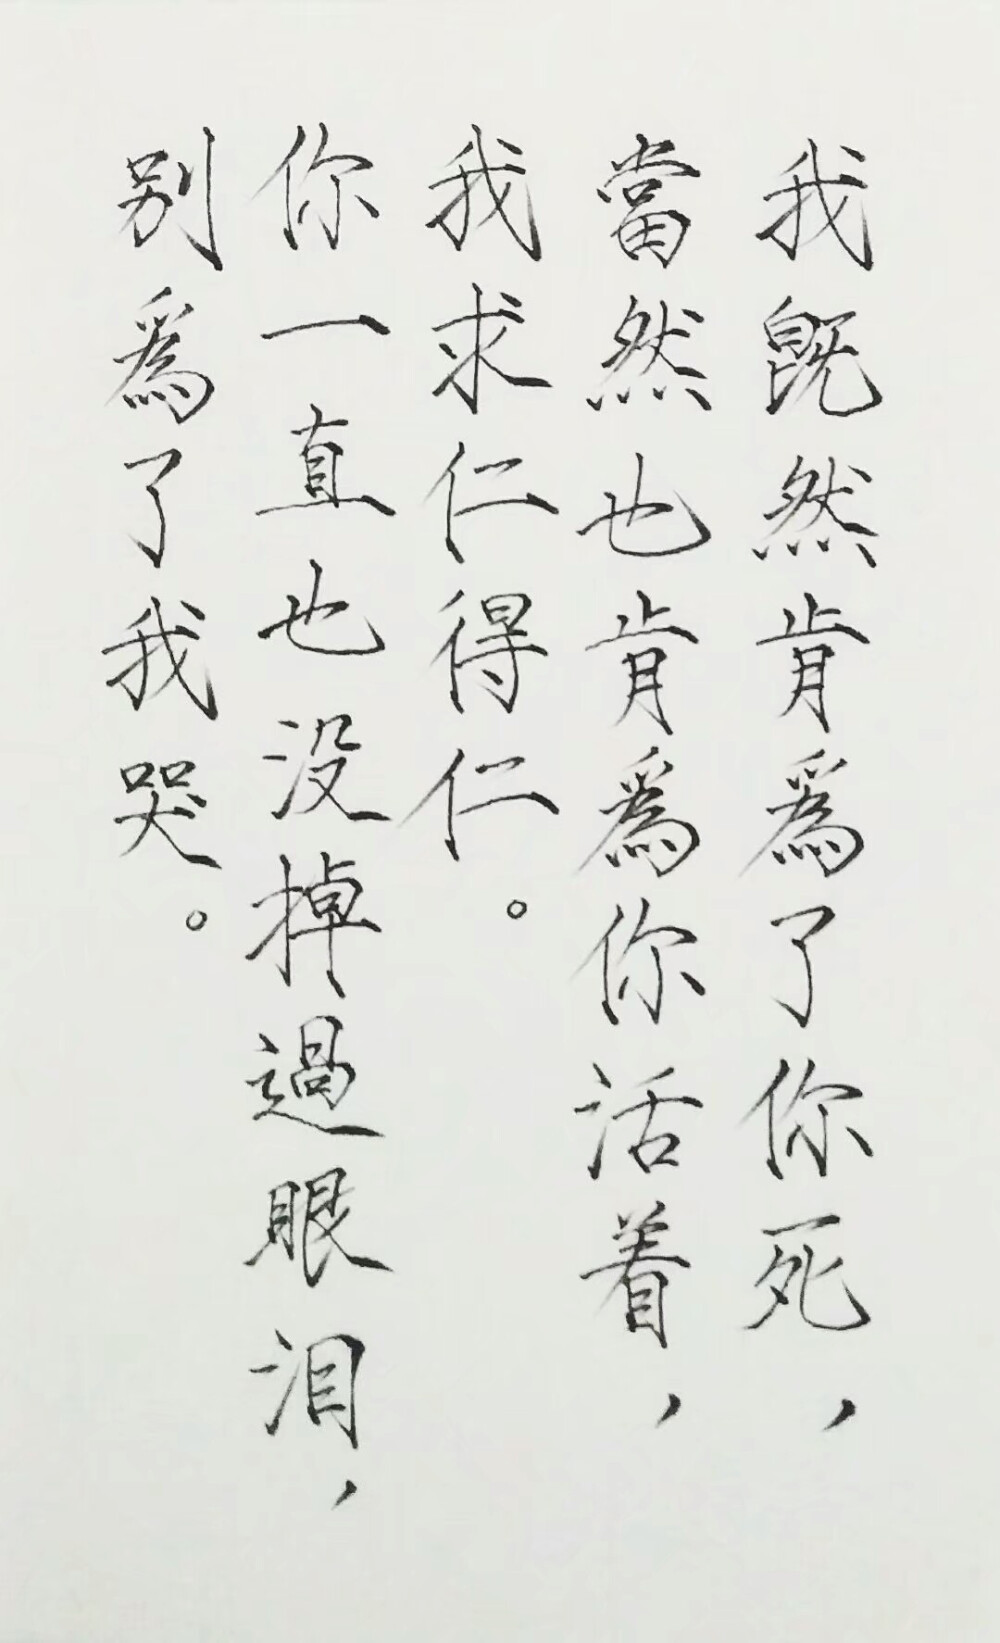 我既然肯爲了你死，
當然也肯爲你活着，
我求仁得仁。
你一直也没掉過眼泪，
别爲了我哭。